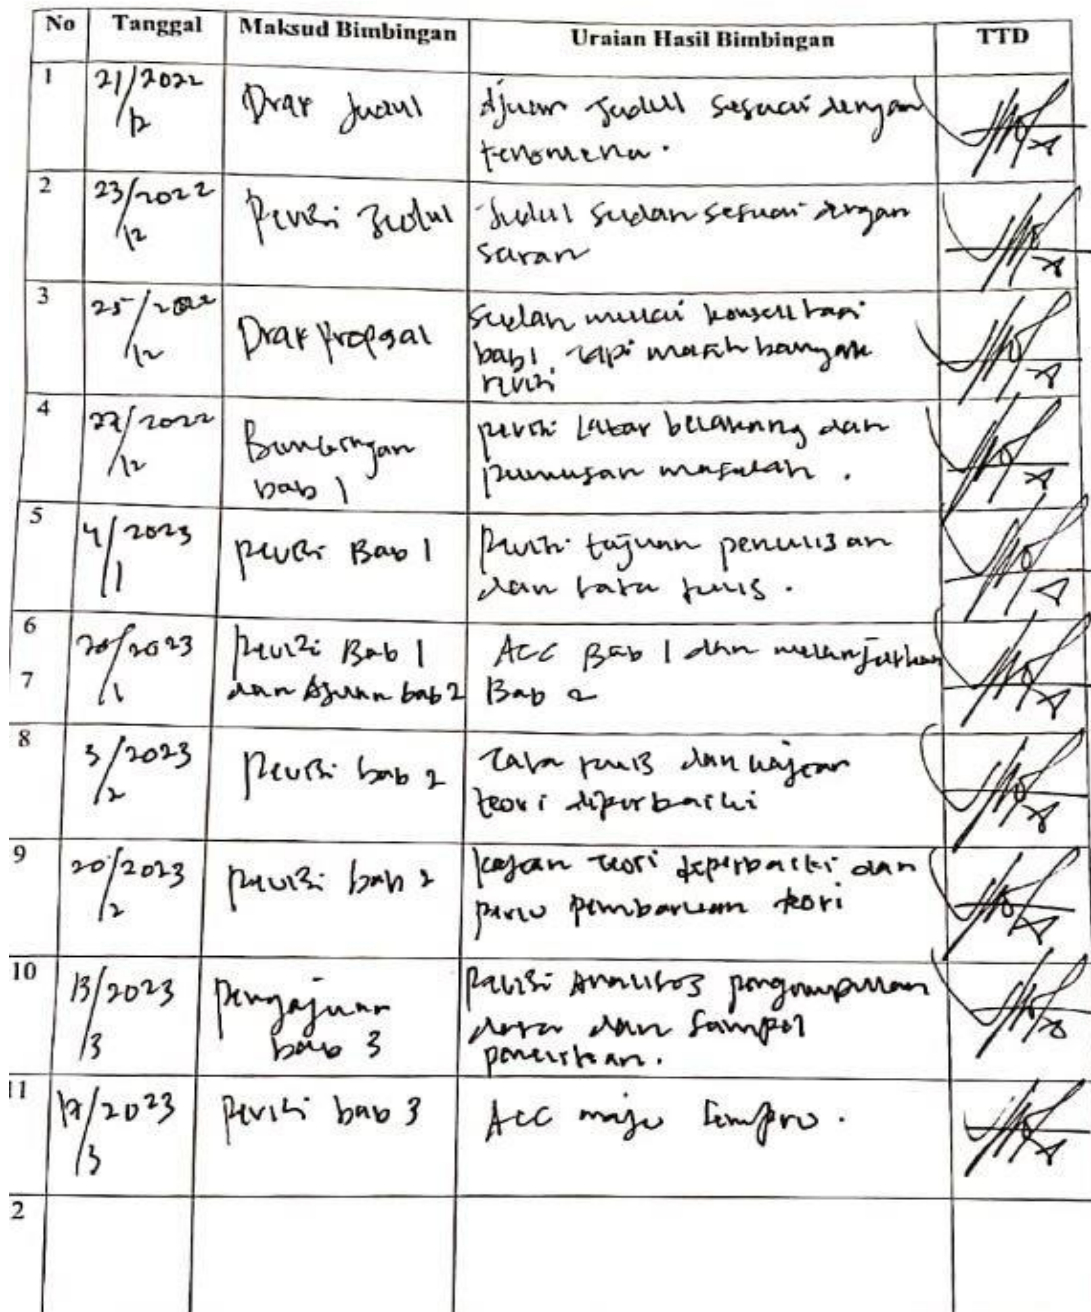 No Tanggal Maksud Bimbingan Uraian Hasil Bimbingan TTD
1 21/2022 Draf Judul Ajuan Judul sesuai dengan
/12 fenomena.
2 23/2022 Revisi Judul Judul sudah sesuai dengan
/12 saran
3 25/2022 Draf Proposal Sudah mulai konsultasi
/12 bab 1 tapi masih banyak
revisi
4 27/2022 Bimbingan revisi Latar belakang dan
/12 bab 1 rumusan masalah.
5 4/2023 revisi Bab 1 revisi tujuan penulisan
/1 dan tata tulis.
6 20/2023 revisi Bab 1 Acc Bab 1 dan melanjutkan
7 /1 dan Ajuan bab 2 Bab 2
8 3/2023 revisi bab 2 Tata tulis dan kajian
/2 teori diperbaiki
9 20/2023 revisi bab 2 kajian teori diperbaiki dan
/2 perlu pembaruan teori
10 13/2023 pengajuan revisi Analisis pengumpulan
/3 bab 3 data dan sampel
penelitian.
11 17/2023 revisi bab 3 Acc maju Sempro.
/3
2